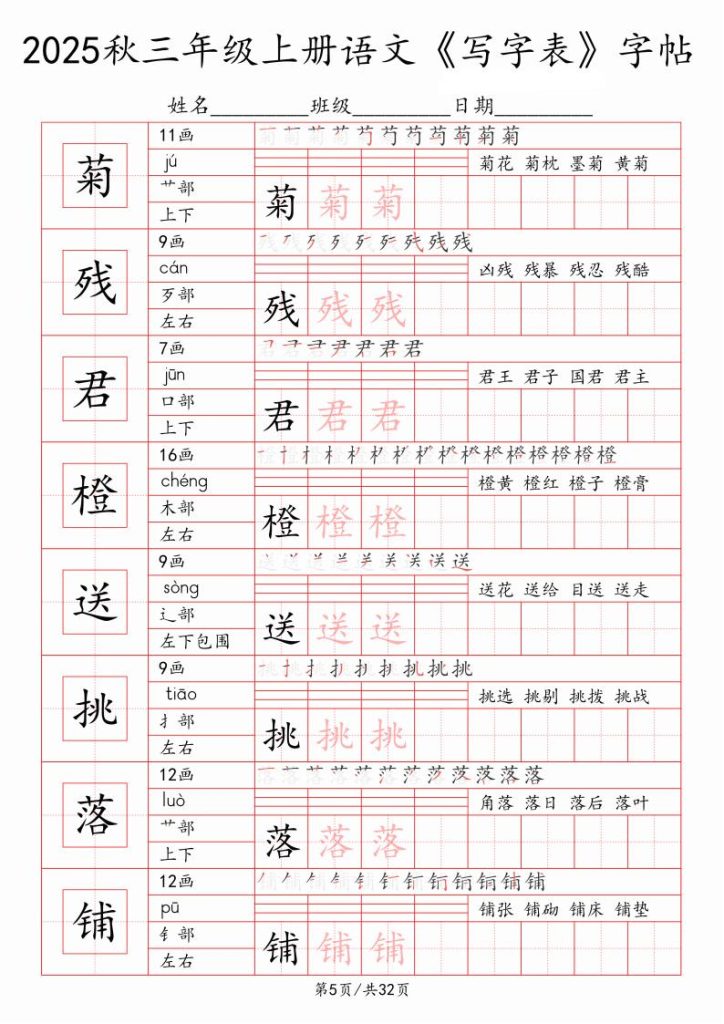 2025秋三年级上册语文《写字表》字帖
姓名________班级________日期________
菊
11画
jú
艹部
上下
菊花 菊枕 墨菊 黄菊
菊 菊 菊
残
9画
cán
歹部
左右
凶残 残暴 残忍 残酷
残 残 残
君
7画
jūn
口部
上下
君王 君子 国君 君主
君 君 君
橙
16画
chéng
木部
左右
橙黄 橙红 橙子 橙膏
橙 橙 橙
送
9画
sòng
辶部
左下包围
送花 送给 目送 送走
送 送 送
挑
9画
tiāo
扌部
左右
挑选 挑剔 挑拨 挑战
挑 挑 挑
落
12画
luò
艹部
上下
角落 落日 落后 落叶
落 落 落
铺
12画
pū
钅部
左右
铺张 铺砌 铺床 铺垫
铺 铺 铺
第5页/共32页